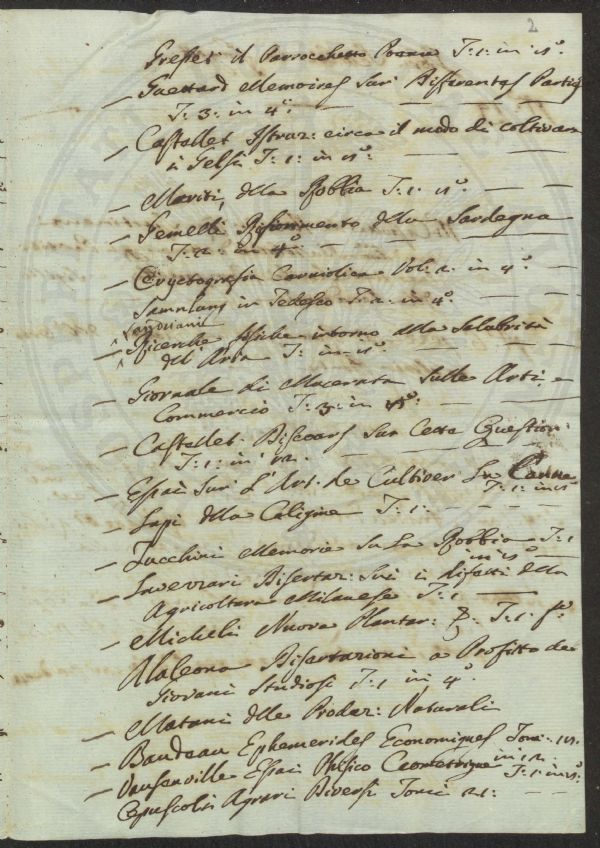 2
Gresset il Parrocchetto Poema T: 1: in 8º.
— Guettard Memoires sur Differentes Parties
T: 3: in 4º: — — — —
— Castellet Istruz: circa il modo di coltivare
i Gelsi T: 1: in 8º: — — —
— Mariti, della Robbia T: 1: 8º: — —
— Gemelli Rifiorimento della Sardegna
T: 2: in 4º — — —
— Oryctografia Carniolica Vol: 2. in 4º —
Samlung in Tedesco T: 2: in 4º. — —
Landriani
— Ricerche fisiche intorno alla Salubrità
dell'Aria T: in 8º: — — —
— Giornale di Macerata sulle Arti, e
Commercio T: 3: in 8º: — — —
— Castellet Discours sur cette Question:
T: 1: in 12. — — —
— Essai sur l'Art: de Cultiver la Canne
T: 1: in 8º
— Lapi della Caligine T: 1: — — — —
— Zucchini Memoria su la Robbia T: 1
in 8º
— Inverzari Disertaz: sui i difetti della
Agricoltura Milanese T: 1 —
— Micheli Nuova Plantar: T: 1: fº
Alaleona Disertazioni a Profitto de
Giovani Studiosi T: 1 in 4º.
— Matani delle Produz: Naturali
— Baudeau Ephemerides Economiques Tom:
in 12.
— Vausenville Essai Phisico T: 1: in 8º:
— Opuscoli Agrari Diversi Tomi 21: — —